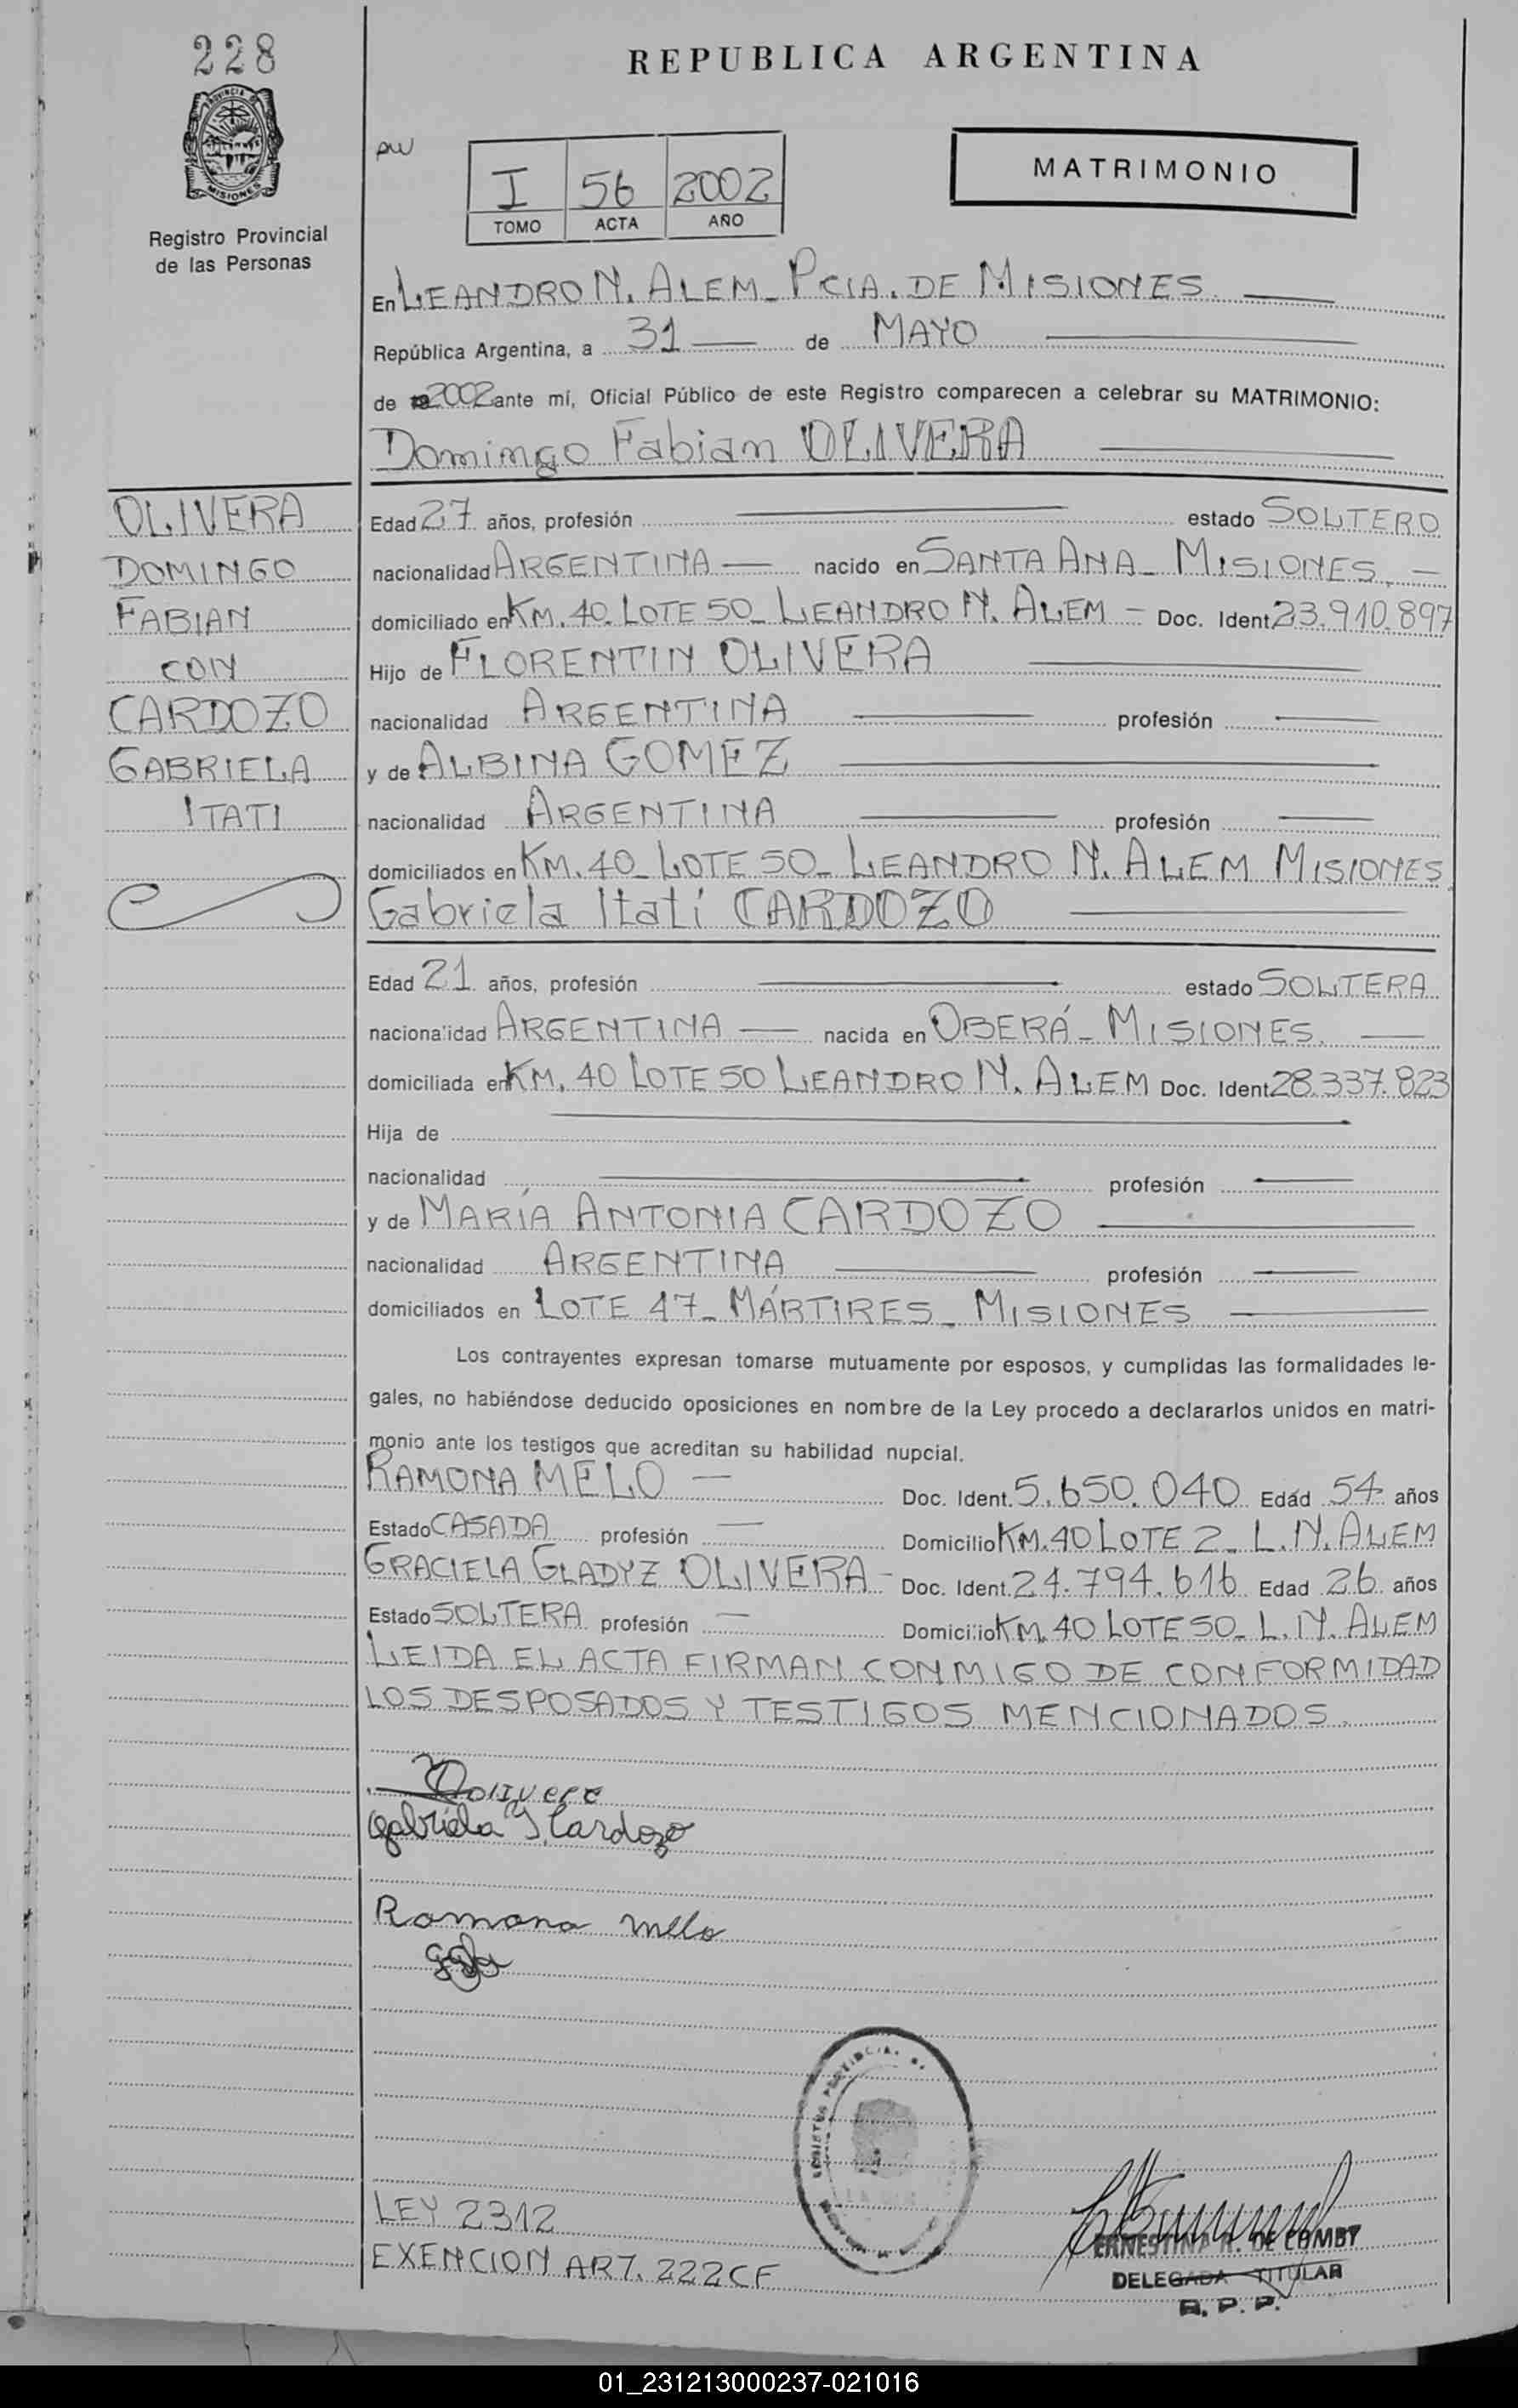 228
REPUBLICA ARGENTINA
PROVINCIA DE
MISIONES
Registro Provincial
de las Personas
I 56 2002
TOMO ACTA AÑO
MATRIMONIO
En LEANDRO N. ALEM - PCIA. DE MISIONES
República Argentina, a 31 de MAYO
de 2002 ante mí, Oficial Público de este Registro comparecen a celebrar su MATRIMONIO:
Domingo Fabian OLIVERA
OLIVERA
DOMINGO
FABIAN
CON
CARDOZO
GABRIELA
ITATI
Edad 27 años, profesión — estado SOLTERO
nacionalidad ARGENTINA — nacido en SANTA ANA - MISIONES. —
domiciliado en KM. 40 LOTE 50 - LEANDRO N. ALEM - Doc. Ident. 23.910.897
Hijo de FLORENTIN OLIVERA
nacionalidad ARGENTINA — profesión —
y de ALBINA GOMEZ
nacionalidad ARGENTINA — profesión —
domiciliados en KM. 40 - LOTE 50 - LEANDRO N. ALEM MISIONES
Gabriela Itatí CARDOZO
Edad 21 años, profesión — estado SOLTERA
nacionalidad ARGENTINA — nacida en OBERÁ - MISIONES. —
domiciliada en KM. 40 LOTE 50 LEANDRO N. ALEM Doc. Ident. 28.337.823
Hija de —
nacionalidad — profesión —
y de MARÍA ANTONIA CARDOZO
nacionalidad ARGENTINA — profesión —
domiciliados en LOTE 47 - MÁRTIRES - MISIONES —
Los contrayentes expresan tomarse mutuamente por esposos, y cumplidas las formalidades le-
gales, no habiéndose deducido oposiciones en nombre de la Ley procedo a declararlos unidos en matri-
monio ante los testigos que acreditan su habilidad nupcial.
RAMONA MELO — Doc. Ident. 5.650.040 Edad 54 años
Estado CASADA profesión — Domicilio KM. 40 LOTE 2 - L. N. ALEM
GRACIELA GLADYZ OLIVERA - Doc. Ident. 24.794.616 Edad 26 años
Estado SOLTERA profesión — Domicilio KM. 40 LOTE 50 - L. N. ALEM
LEIDA EL ACTA FIRMAN CONMIGO DE CONFORMIDAD
LOS DESPOSADOS Y TESTIGOS MENCIONADOS.
Gabriela I. Cardozo
Ramona Mello
LEY 2312
EXENCION ART. 222 CF
DELEGADA TITULAR
R. P. P.
01_231213000237-021016